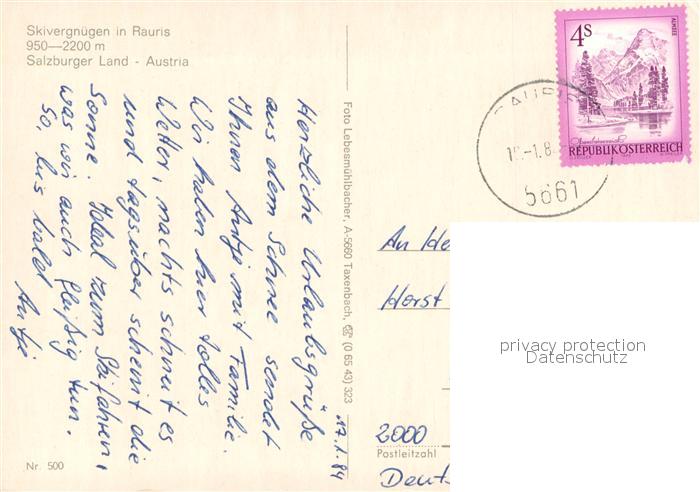 Skivergnügen in Rauris
950—2200 m
Salzburger Land - Austria
17.1.84
Herzliche Urlaubsgrüße
aus dem Schnee sendet
Ihnen Antje mit Familie.
Wir haben hier tolles
Wetter, nachts schneit es
und tagsüber scheint die
Sonne. Ideal zum Skifahren,
was wir auch fleißig tun.
So, bis bald
Antje
Nr. 500
Foto Lebesmühlbacher, A-5660 Taxenbach, ☎ (0 65 43) 323
4S
ALMSEE
REPUBLIK ÖSTERREICH
5661
An
Horst
2000
Postleitzahl
privacy protection
Datenschutz